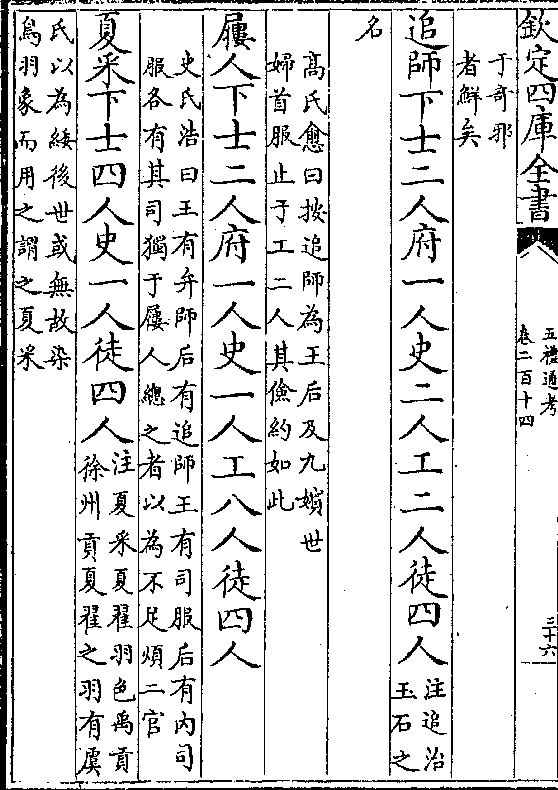 欽定四庫全書
五禮通考
卷二百十四
三十六
于奇邪
者鮮矣
追師下士二人府一人史二人工二人徒四人
注追治
玉石之
名
高氏愈曰按追師為王后及九嬪世
婦首服止于工二人其儉約如此
屨人下士二人府一人史一人工八人徒四人
史氏浩曰王有弁師后有追師王有司服后有內司
服各有其司獨于屨人總之者以為不足煩二官
夏采下士四人史一人徒四人
注夏采夏翟羽色禹貢
徐州貢夏翟之羽有虞
氏以為緌後世或無故染
鳥羽象而用之謂之夏采